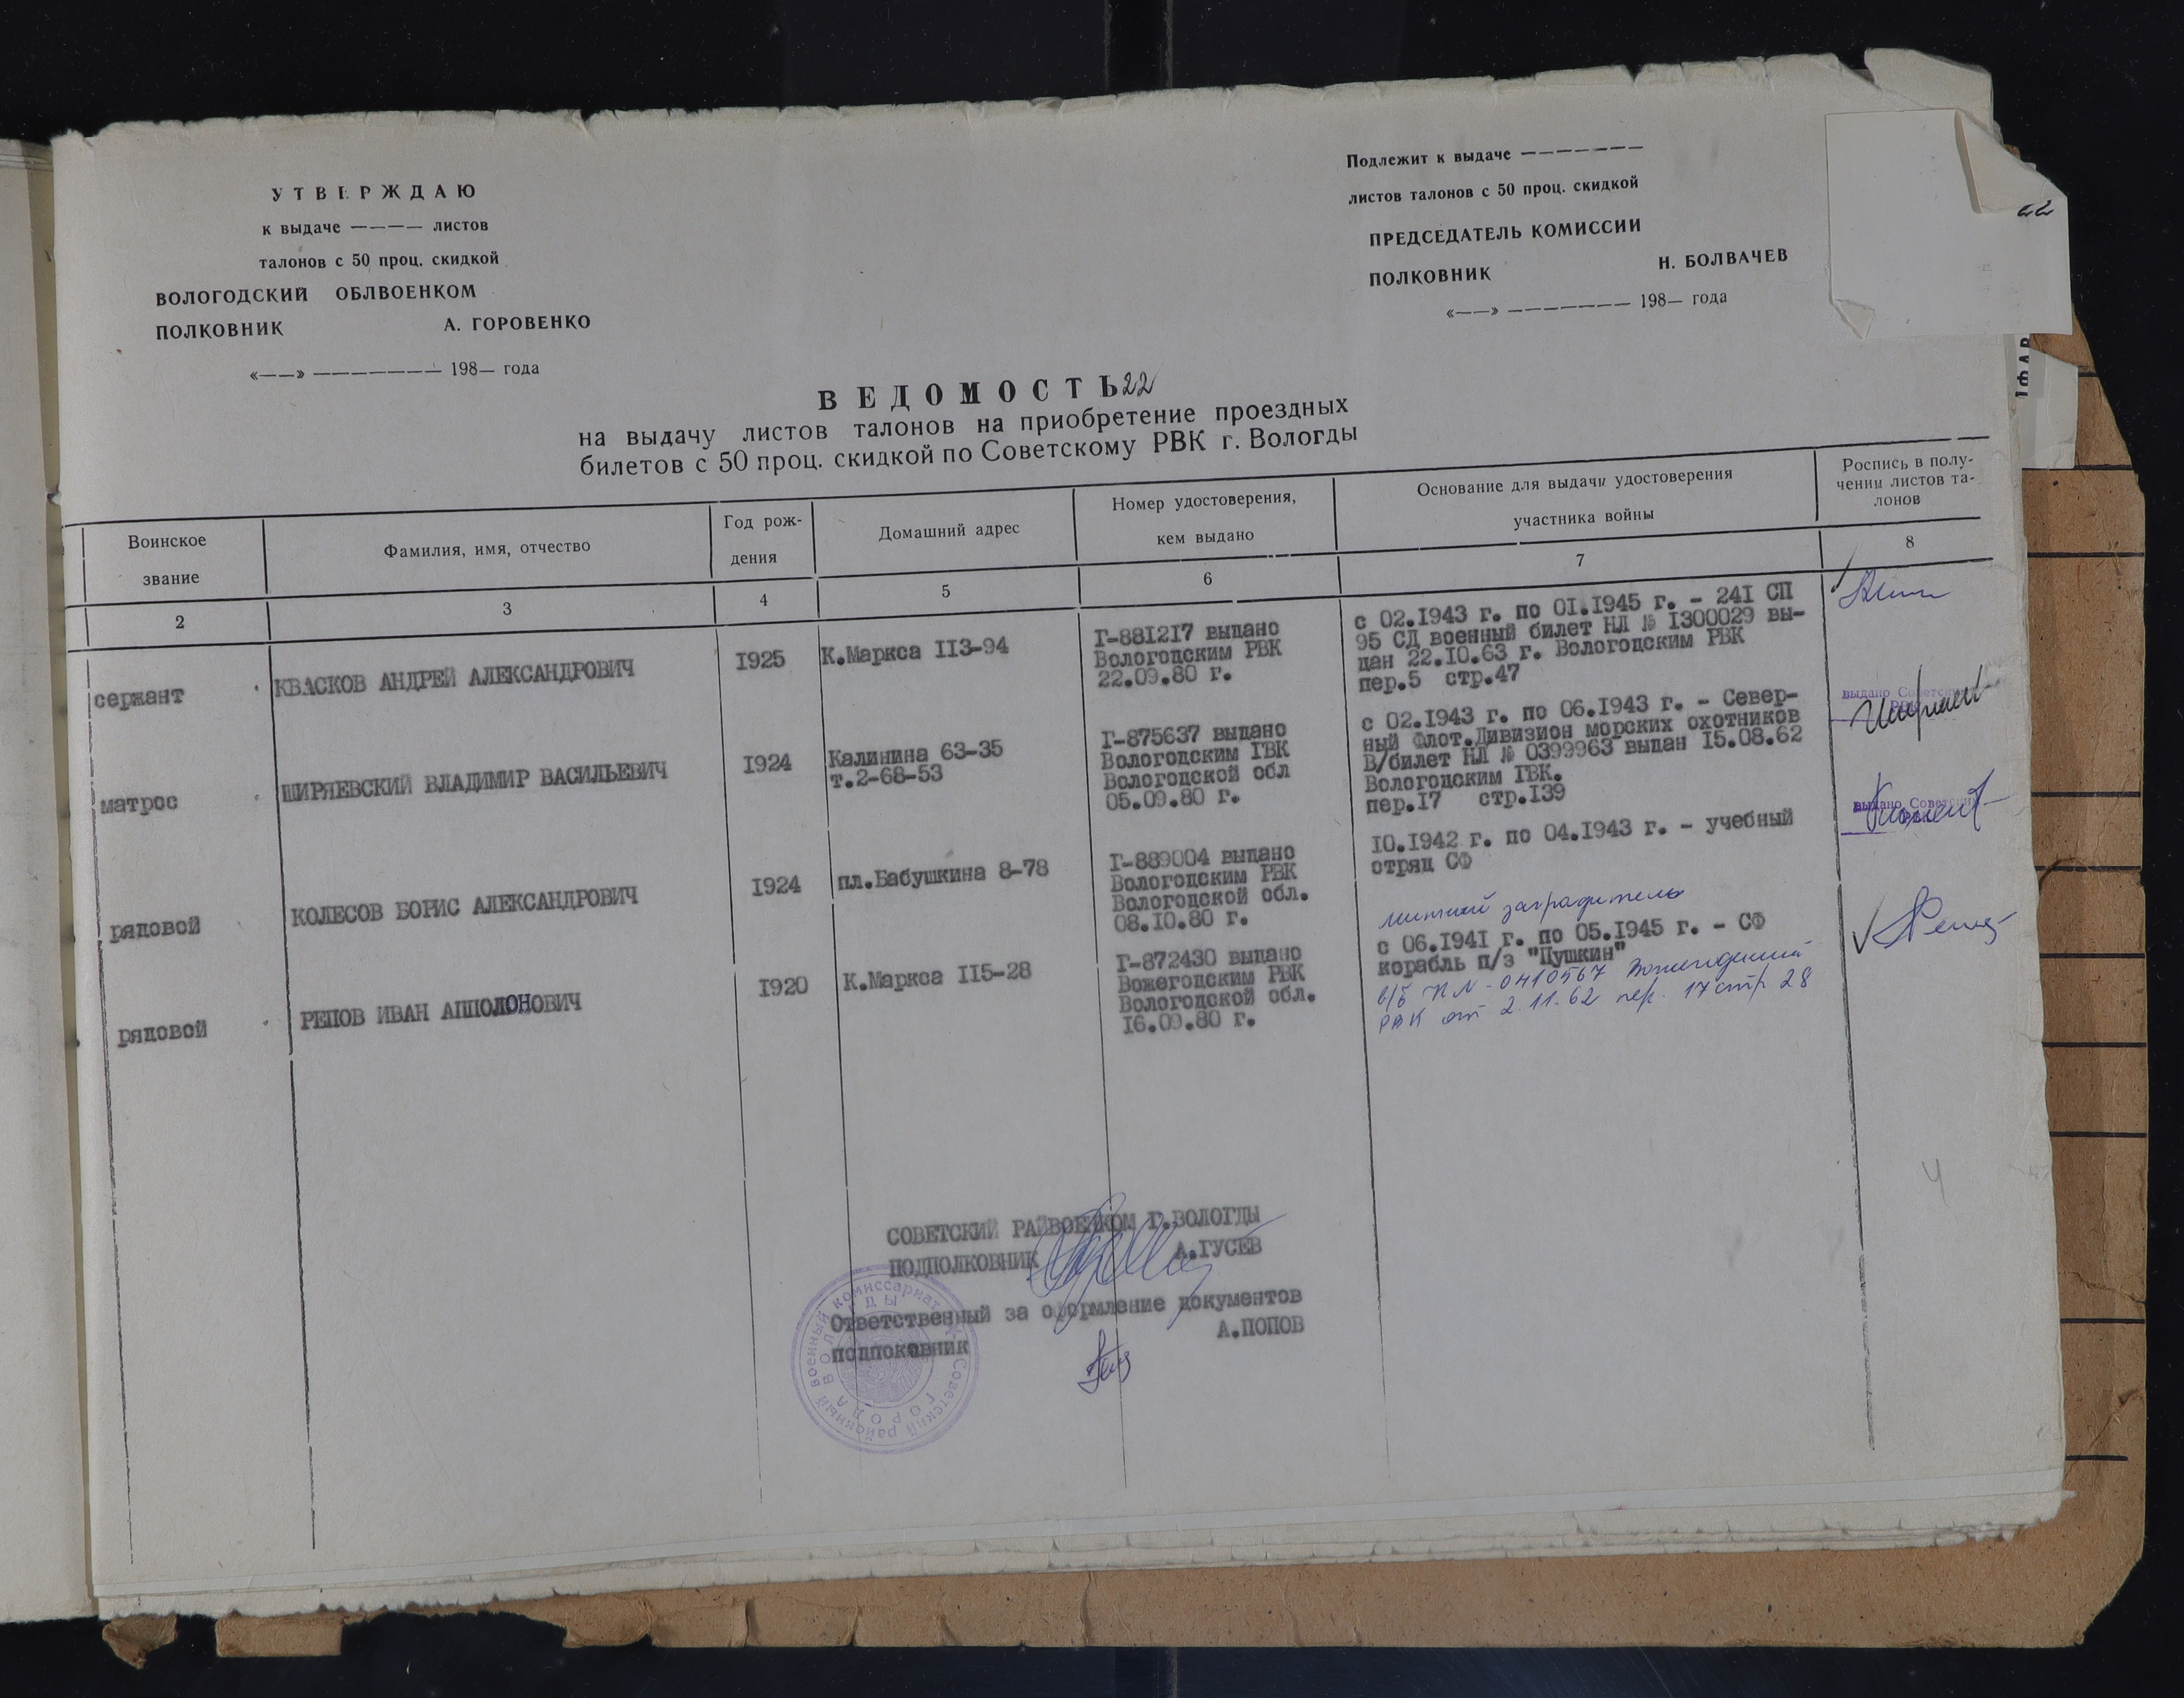 УТВЕРЖДАЮ
к выдаче ———— листов
талонов с 50 проц. скидкой
ВОЛОГОДСКИЙ ОБЛВОЕНКОМ
ПОЛКОВНИК А. ГОРОВЕНКО
«——» ——————— 198— года
Подлежит к выдаче ———————
листов талонов с 50 проц. скидкой
ПРЕДСЕДАТЕЛЬ КОМИССИИ
ПОЛКОВНИК Н. БОЛВАЧЕВ
«——» ——————— 198— года
22
ВЕДОМОСТЬ 22
на выдачу листов талонов на приобретение проездных
билетов с 50 проц. скидкой по Советскому РВК г. Вологды
Воинское
звание
Фамилия, имя, отчество
Год рож-
дения
Домашний адрес
Номер удостоверения,
кем выдано
Основание для выдачи удостоверения
участника войны
Роспись в полу-
чении листов та-
лонов
2 3 4 5 6 7 8
сержант
КВАСКОВ АНДРЕЙ АЛЕКСАНДРОВИЧ
I925
К.Маркса II3-94
Г-88I2I7 выдано
Вологодским РВК
22.09.80 г.
с 02.I943 г. по 0I.I945 г. - 24I СП
95 СД военный билет НЛ № I300029 вы-
дан 22.I0.63 г. Вологодским РВК
пер.5 стр.47
матрос
ШИРЯЕВСКИЙ ВЛАДИМИР ВАСИЛЬЕВИЧ
I924
Калинина 63-35
т.2-68-53
Г-875637 выдано
Вологодским ГВК
Вологодской обл
05.09.80 г.
с 02.I943 г. по 06.I943 г. - Север-
ный Флот.Дивизион морских охотников
В/билет НЛ № 0399963 выдан I5.08.62
Вологодским ГВК.
пер.I7 стр.I39
выдано Советским
РВК
рядовой
КОЛЕСОВ БОРИС АЛЕКСАНДРОВИЧ
I924
пл.Бабушкина 8-78
Г-889004 выдано
Вологодским РВК
Вологодской обл.
08.I0.80 г.
I0.I942 г. по 04.I943 г. - учебный
отряд СФ
выдано Советским
рядовой
РЕПОВ ИВАН АППОЛОНОВИЧ
I920
К.Маркса II5-28
Г-872430 выдано
Вожегодским РВК
Вологодской обл.
I6.09.80 г.
минный заградитель
с 06.I94I г. по 05.I945 г. - СФ
корабль п/з "Пушкин"
в/б НЛ - 0410567 Вожегодский
РВК от 2.11.62 пер. 17 стр 28
СОВЕТСКИЙ РАЙВОЕНКОМ Г.ВОЛОГДЫ
ПОДПОЛКОВНИК А.ГУСЕВ
Ответственный за оформление документов
подпоковник А.ПОПОВ
Советский районный военный комиссариат
ГОРОДА ВОЛОГДЫ
4